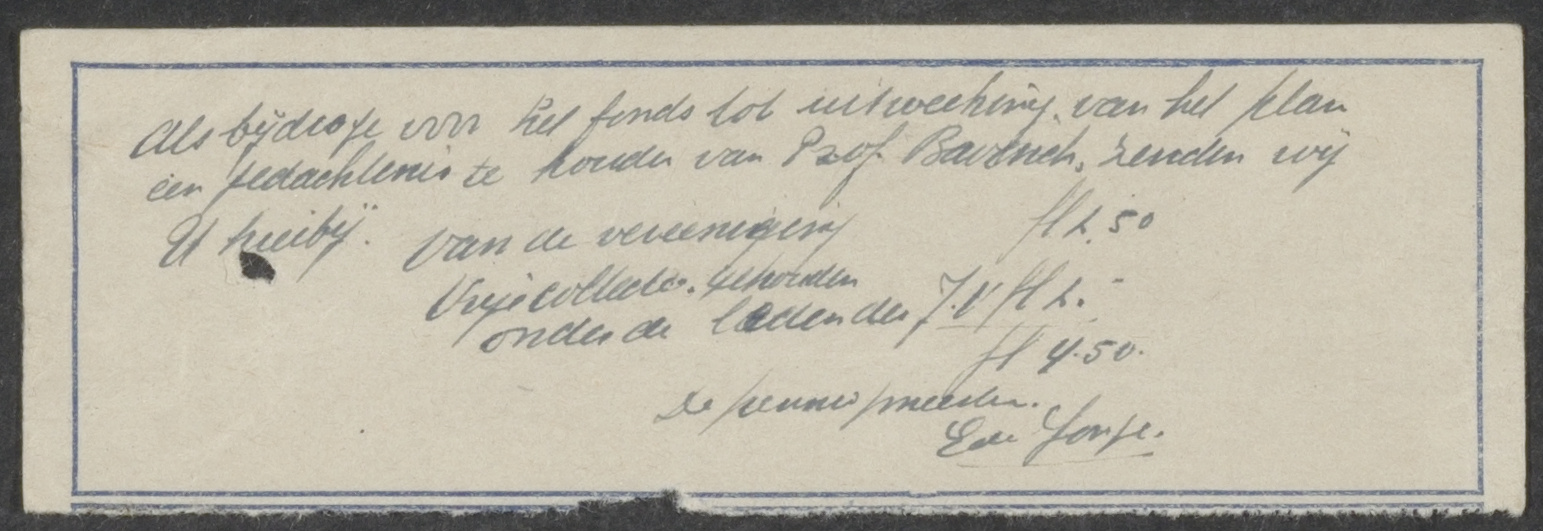 Als bijdrage voor het fonds tot uitwerking van het plan
een gedachtenis te houden van Prof. Bavinck, zenden wij
U hierbij. Van de vereeniging fl 2.50
Vrije collecte. gehouden
onder de leden der J.V. fl 2.-
fl 4.50.
De penningmeester.
E de Jonge.